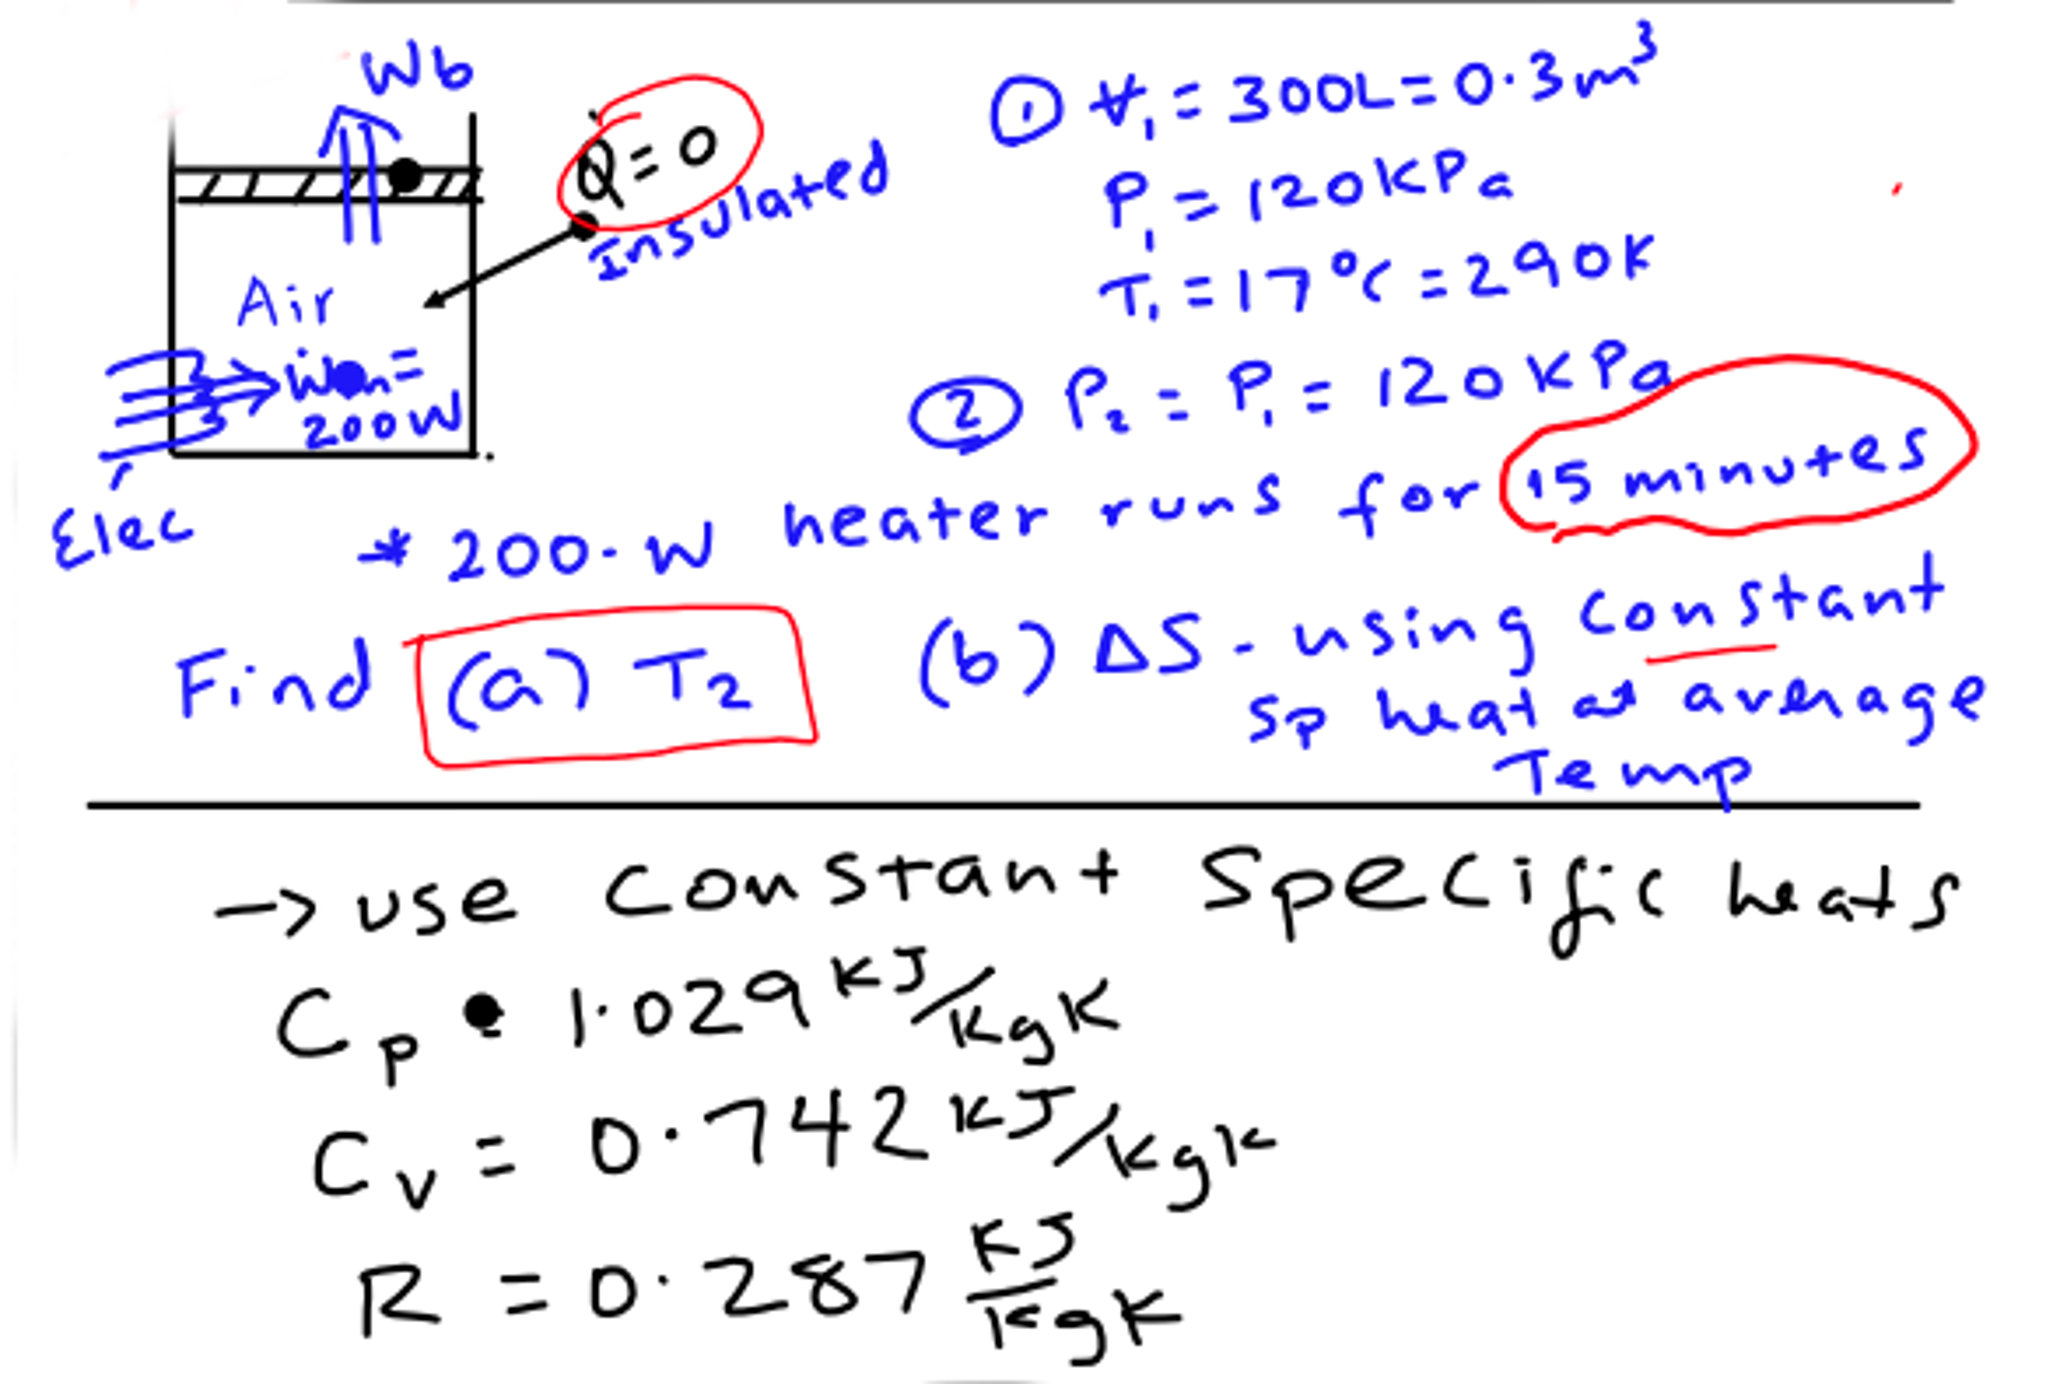 Wb
Q̇ = 0
Insulated
Air
Ẇin =
200W
Elec
① V₁ = 300L = 0.3m³
P₁ = 120KPa
T₁ = 17°C = 290K
② P₂ = P₁ = 120KPa
* 200-W heater runs for 15 minutes
Find (a) T₂ (b) ΔS - using constant
Sp heat at average
Temp
→ use Constant Specific heats
Cp = 1.029 KJ/KgK
Cv = 0.742 KJ/KgK
R = 0.287 KJ/KgK